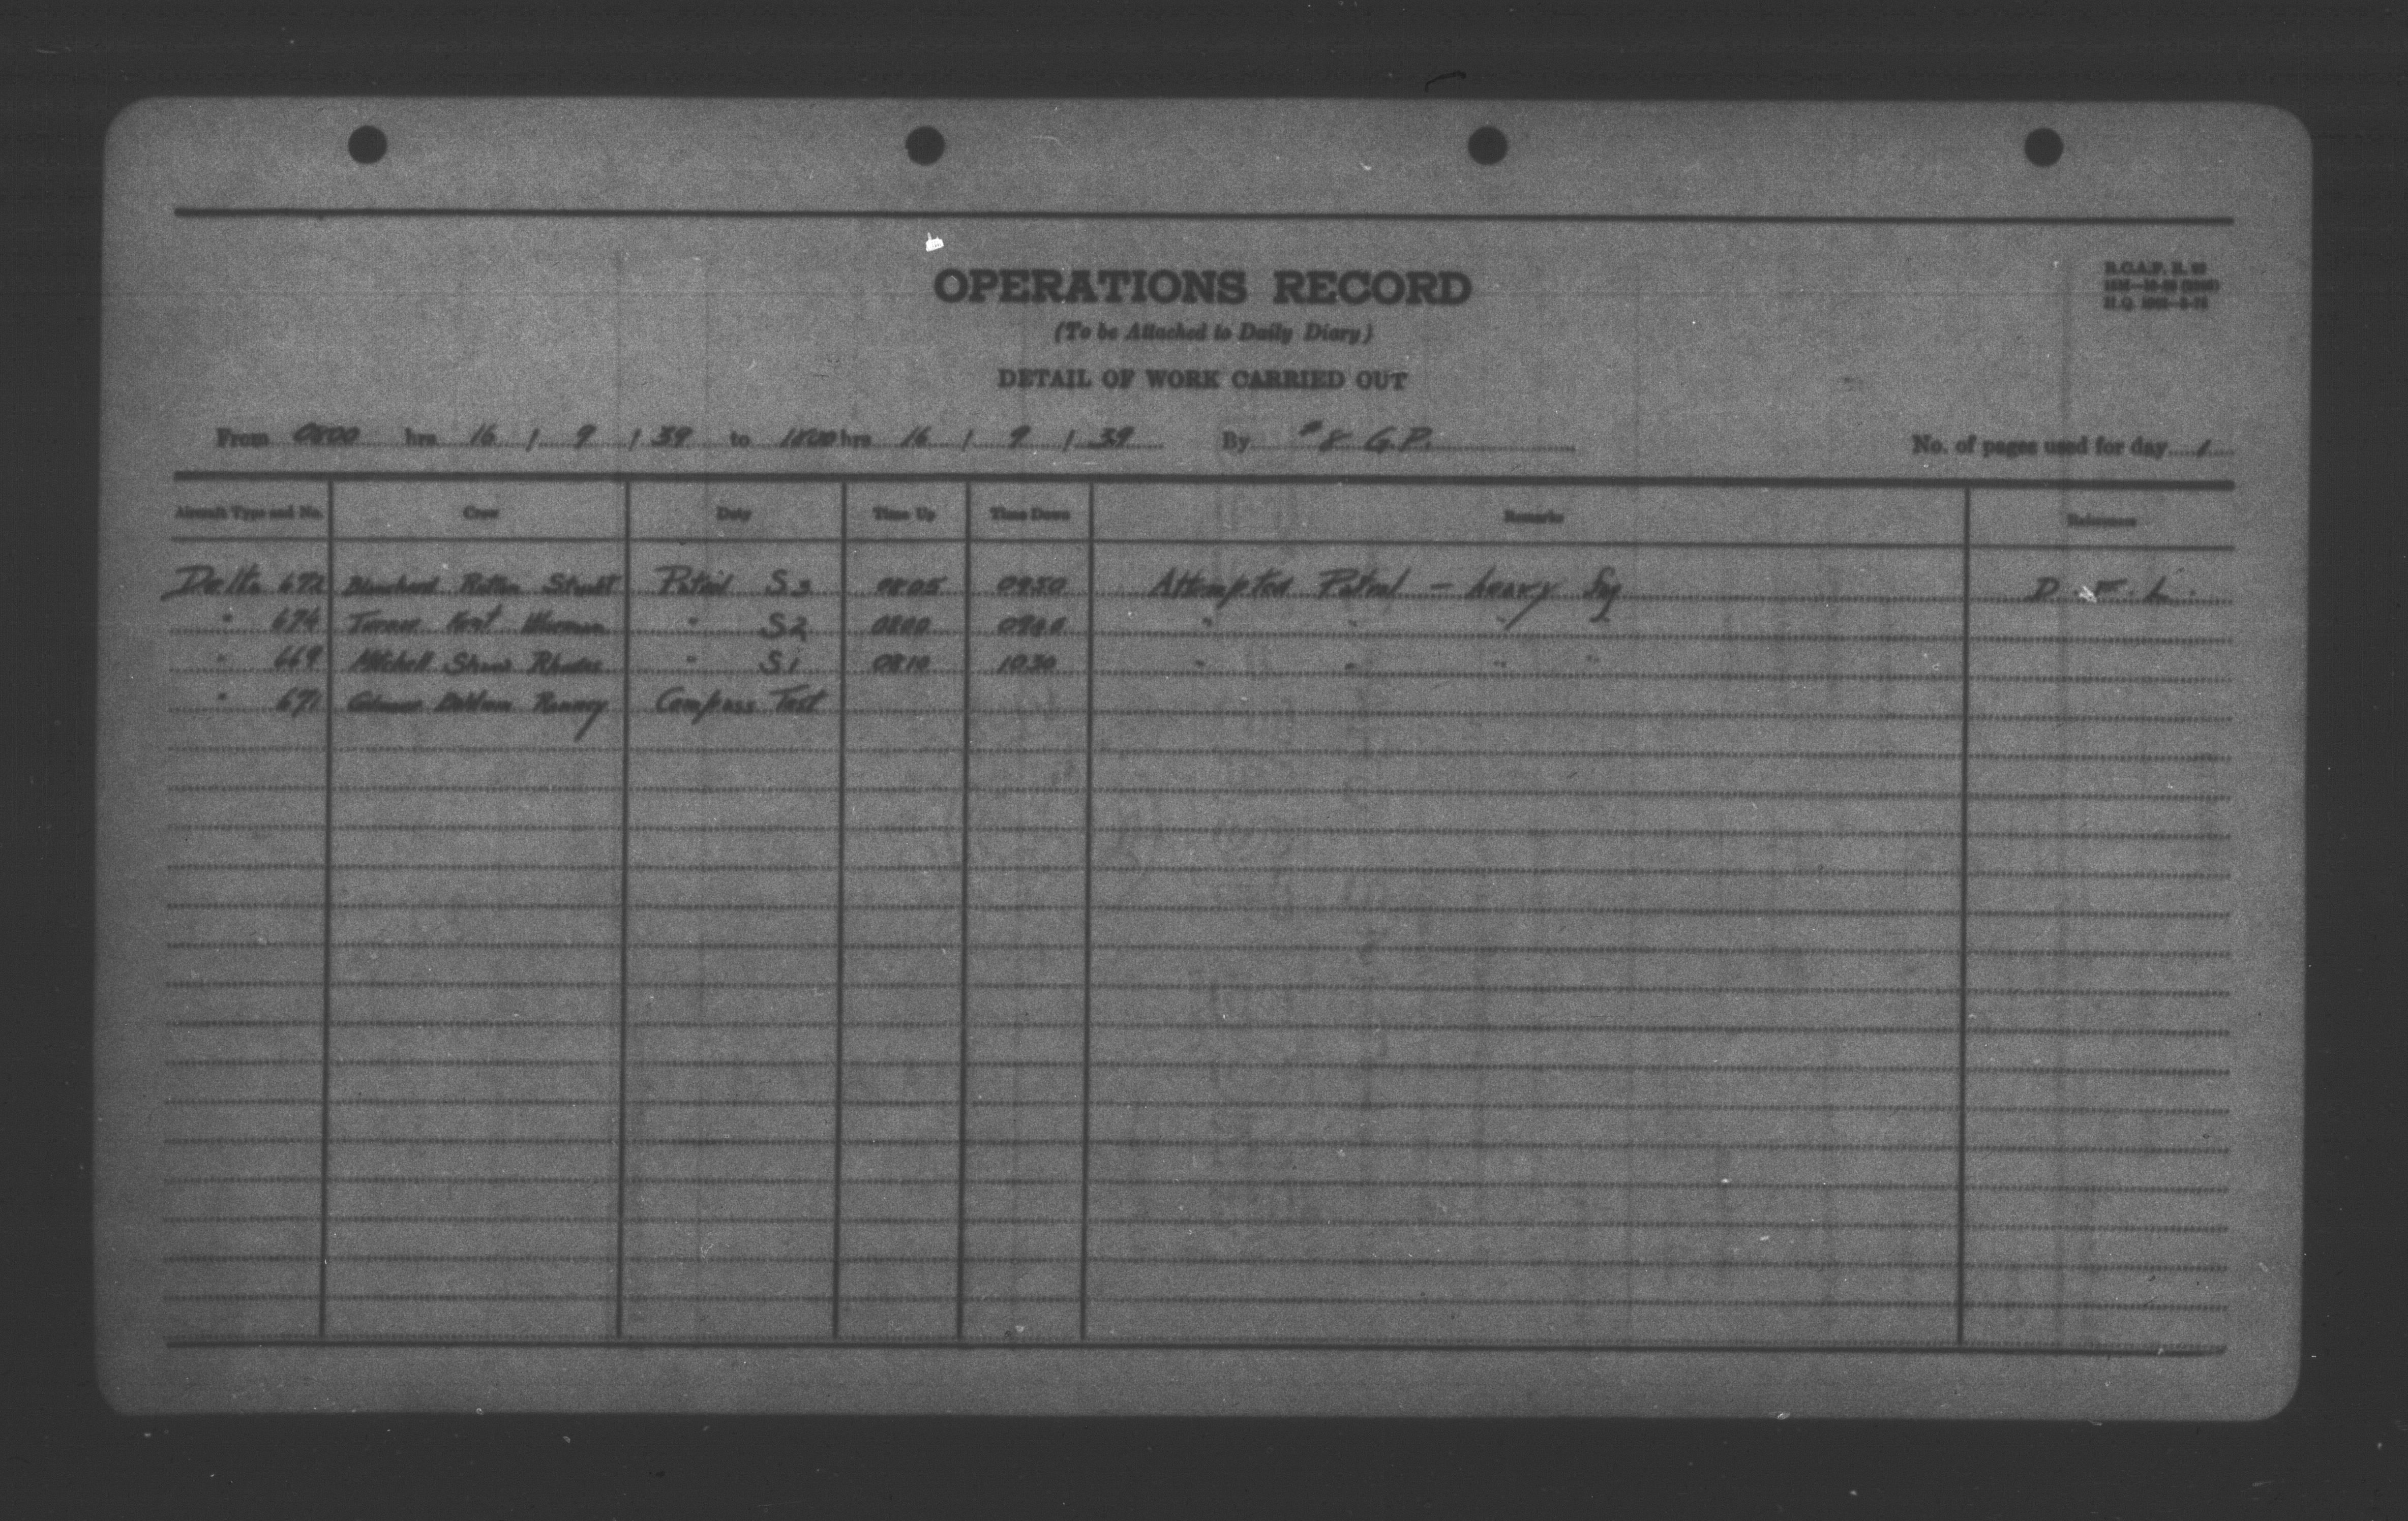 OPERATIONS RECORD
R.C.A.F. R.
(To be Attached to Daily Diary)
H.Q.
DETAIL OF WORK CARRIED OUT
From 0800 hrs 16 / 9 / 39 to 1800 hrs 16 / 9 / 39 By #8 G.P. No. of pages used for day 1
Aircraft Type and No. Crew Duty Time Up Time Down Remarks Reference
Delta 672 Blanchard Patrol S3 0805 0950 Attempted Patrol - heavy fog D.F.L.
" 674 Turner Kent " S2 0800 0940 " " "
" 669 Mitchell Shaw Rhodes " S1 0810 1030 " " " "
" 671 Ranney Compass Test